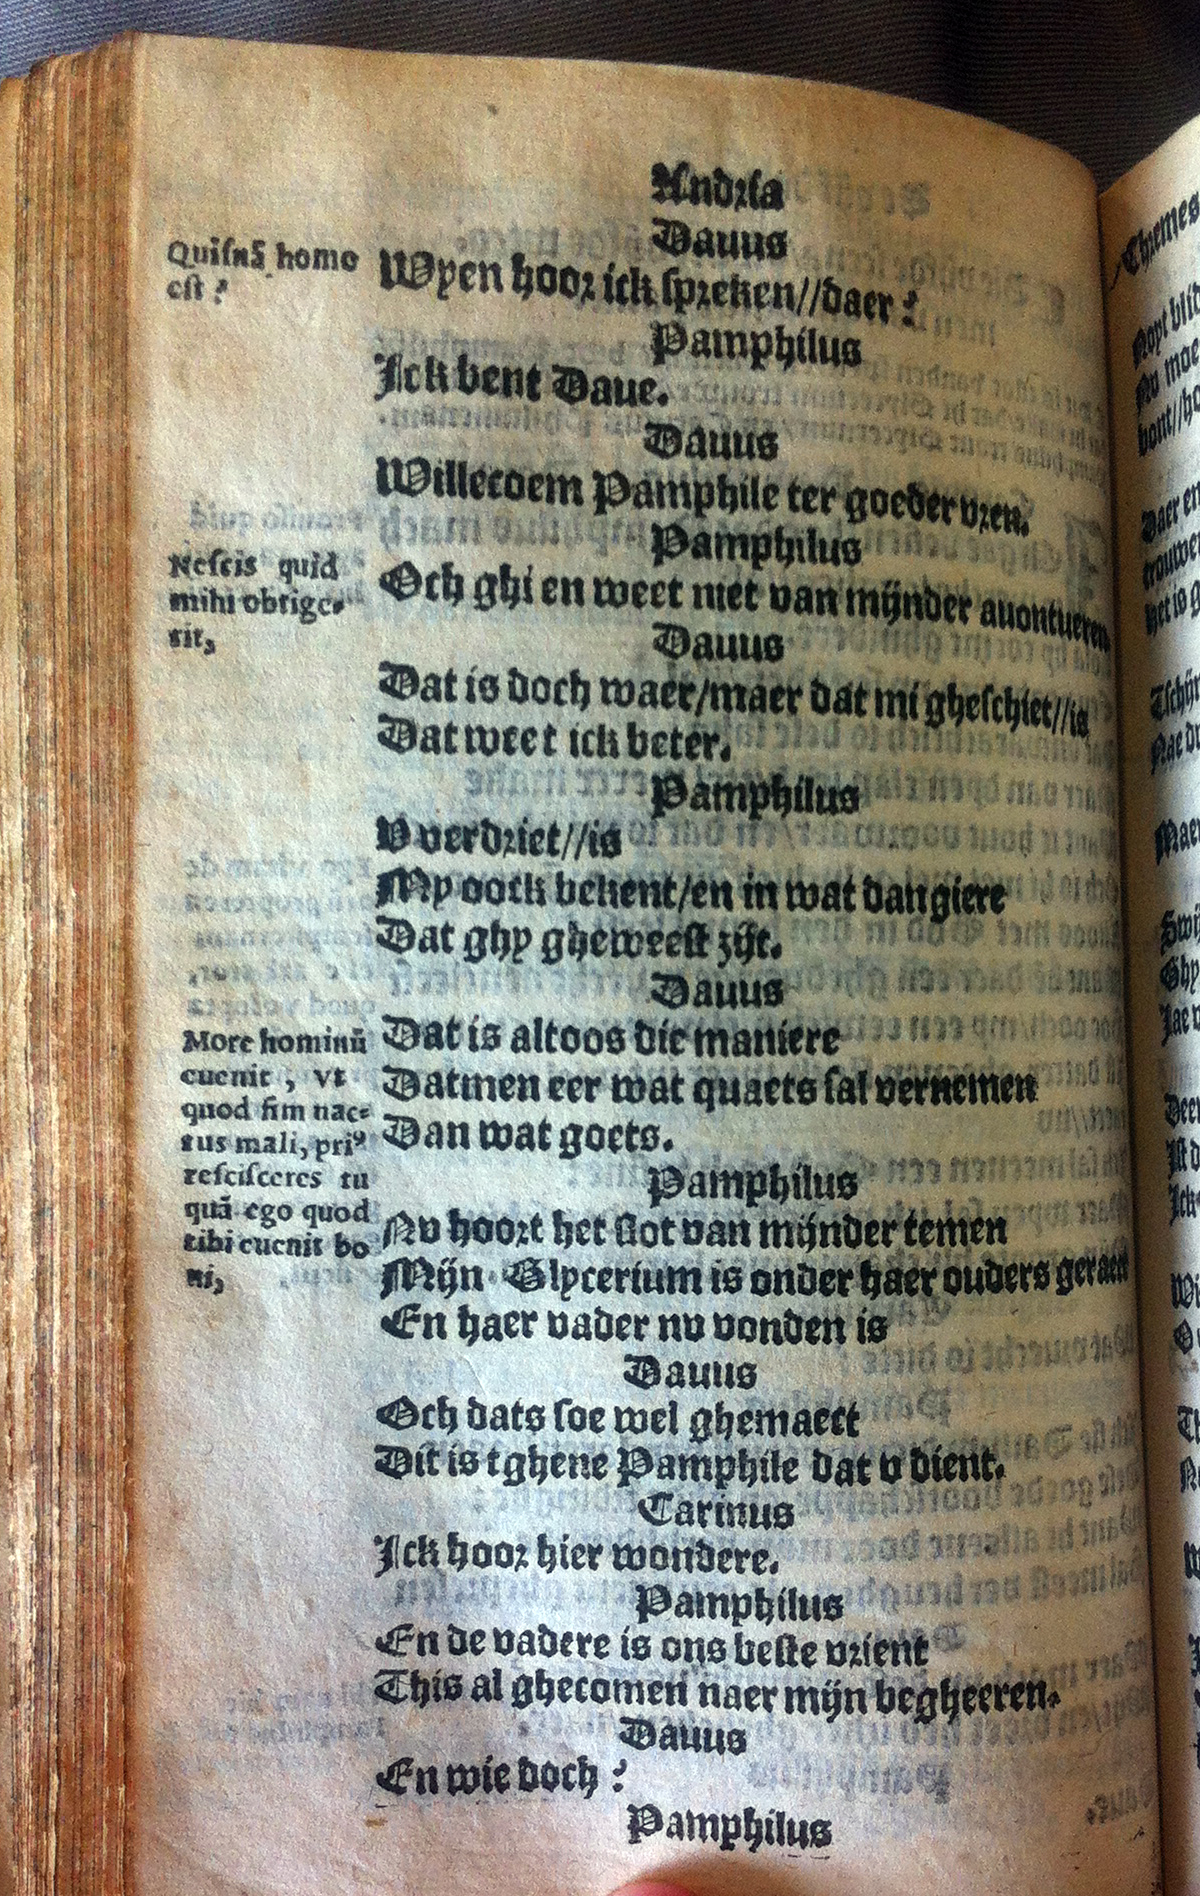 Andria
Dauus
Quisnā homo
est?
Wyen hoor ick spreken//daer?
Pamphilus
Ick bent Daue.
Dauus
Willecoem Pamphile ter goeder vren.
Pamphilus
Nescis quid
mihi obtige-
rit,
Och ghi en weet niet van mijnder auontueren
Dauus
Dat is doch waer/maer dat mi gheschiet//is
Dat weet ick beter.
Pamphilus
V verdriet//is
My oock bekent/en in wat dangiere
Dat ghy gheweest zijt.
Dauus
More hominū
euenit, vt
quod sim nac-
tus mali, pri⁹
rescisceres tu
quā ego quod
tibi euenit bo
ni,
Dat is altoos die maniere
Datmen eer wat quaets sal vernemen
Dan wat goets.
Pamphilus
Nv hoort het slot van mijnder temen
Mijn Glycerium is onder haer ouders geraect
En haer vader nv vonden is
Dauus
Och dats soe wel ghemaect
Dit is tghene Pamphile dat v dient.
Carinus
Ick hoor hier wondere.
Pamphilus
En de vadere is ons beste vrient
This al ghecomen naer mijn begheeren.
Dauus
En wie doch?
Pamphilus
Chremes